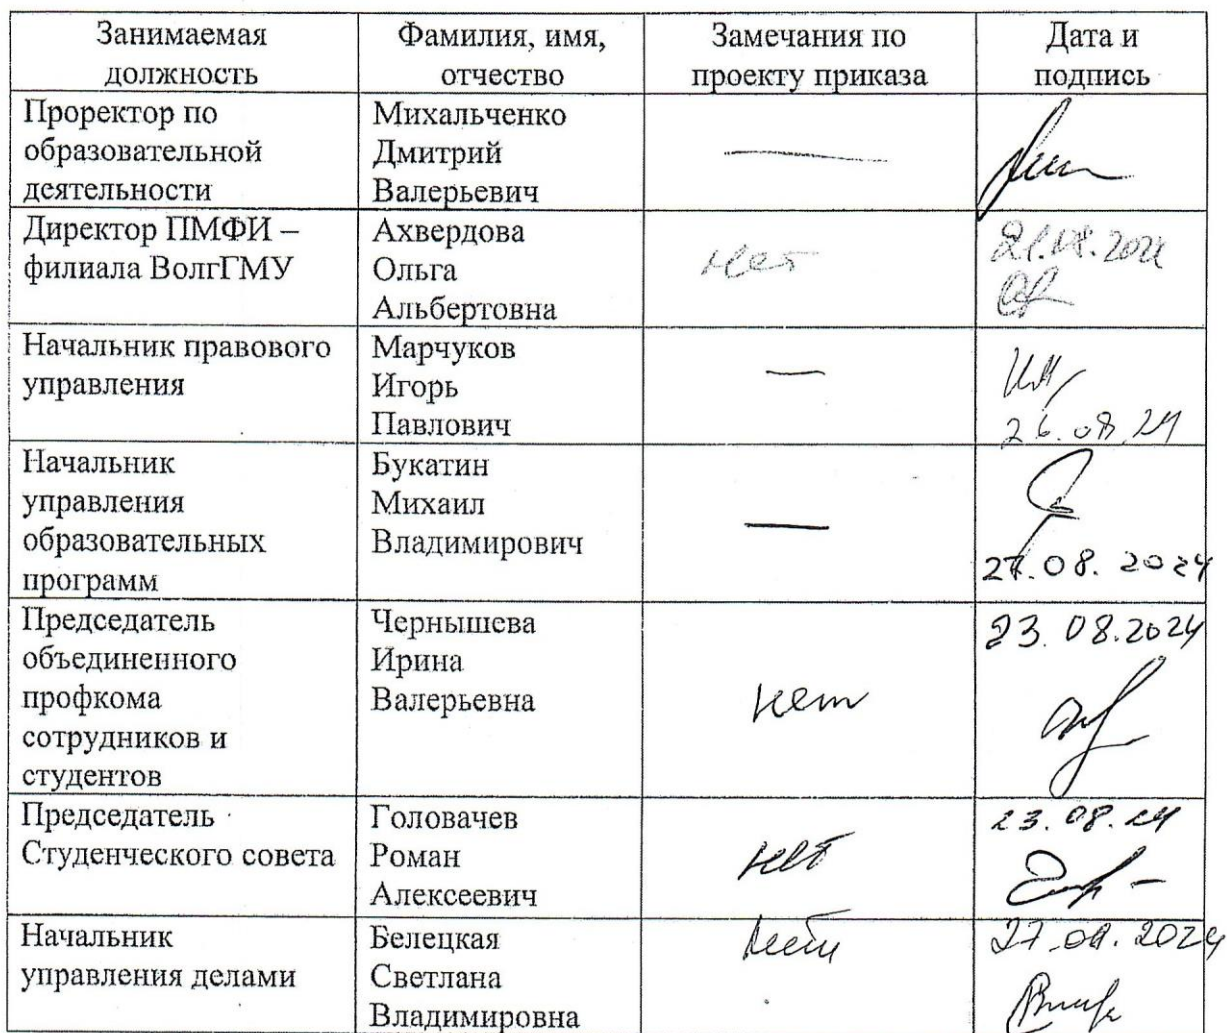 Занимаемая
должность
Фамилия, имя,
отчество
Замечания по
проекту приказа
Дата и
подпись
Проректор по
образовательной
деятельности
Михальченко
Дмитрий
Валерьевич
—
Директор ПМФИ –
филиала ВолгГМУ
Ахвердова
Ольга
Альбертовна
нет
21.08.2024
Начальник правового
управления
Марчуков
Игорь
Павлович
—
26.08.24
Начальник
управления
образовательных
программ
Букатин
Михаил
Владимирович
—
27.08.2024
Председатель
объединенного
профкома
сотрудников и
студентов
Чернышева
Ирина
Валерьевна
нет
23.08.2024
Председатель
Студенческого совета
Головачев
Роман
Алексеевич
нет
23.08.24
Начальник
управления делами
Белецкая
Светлана
Владимировна
27.08.2024